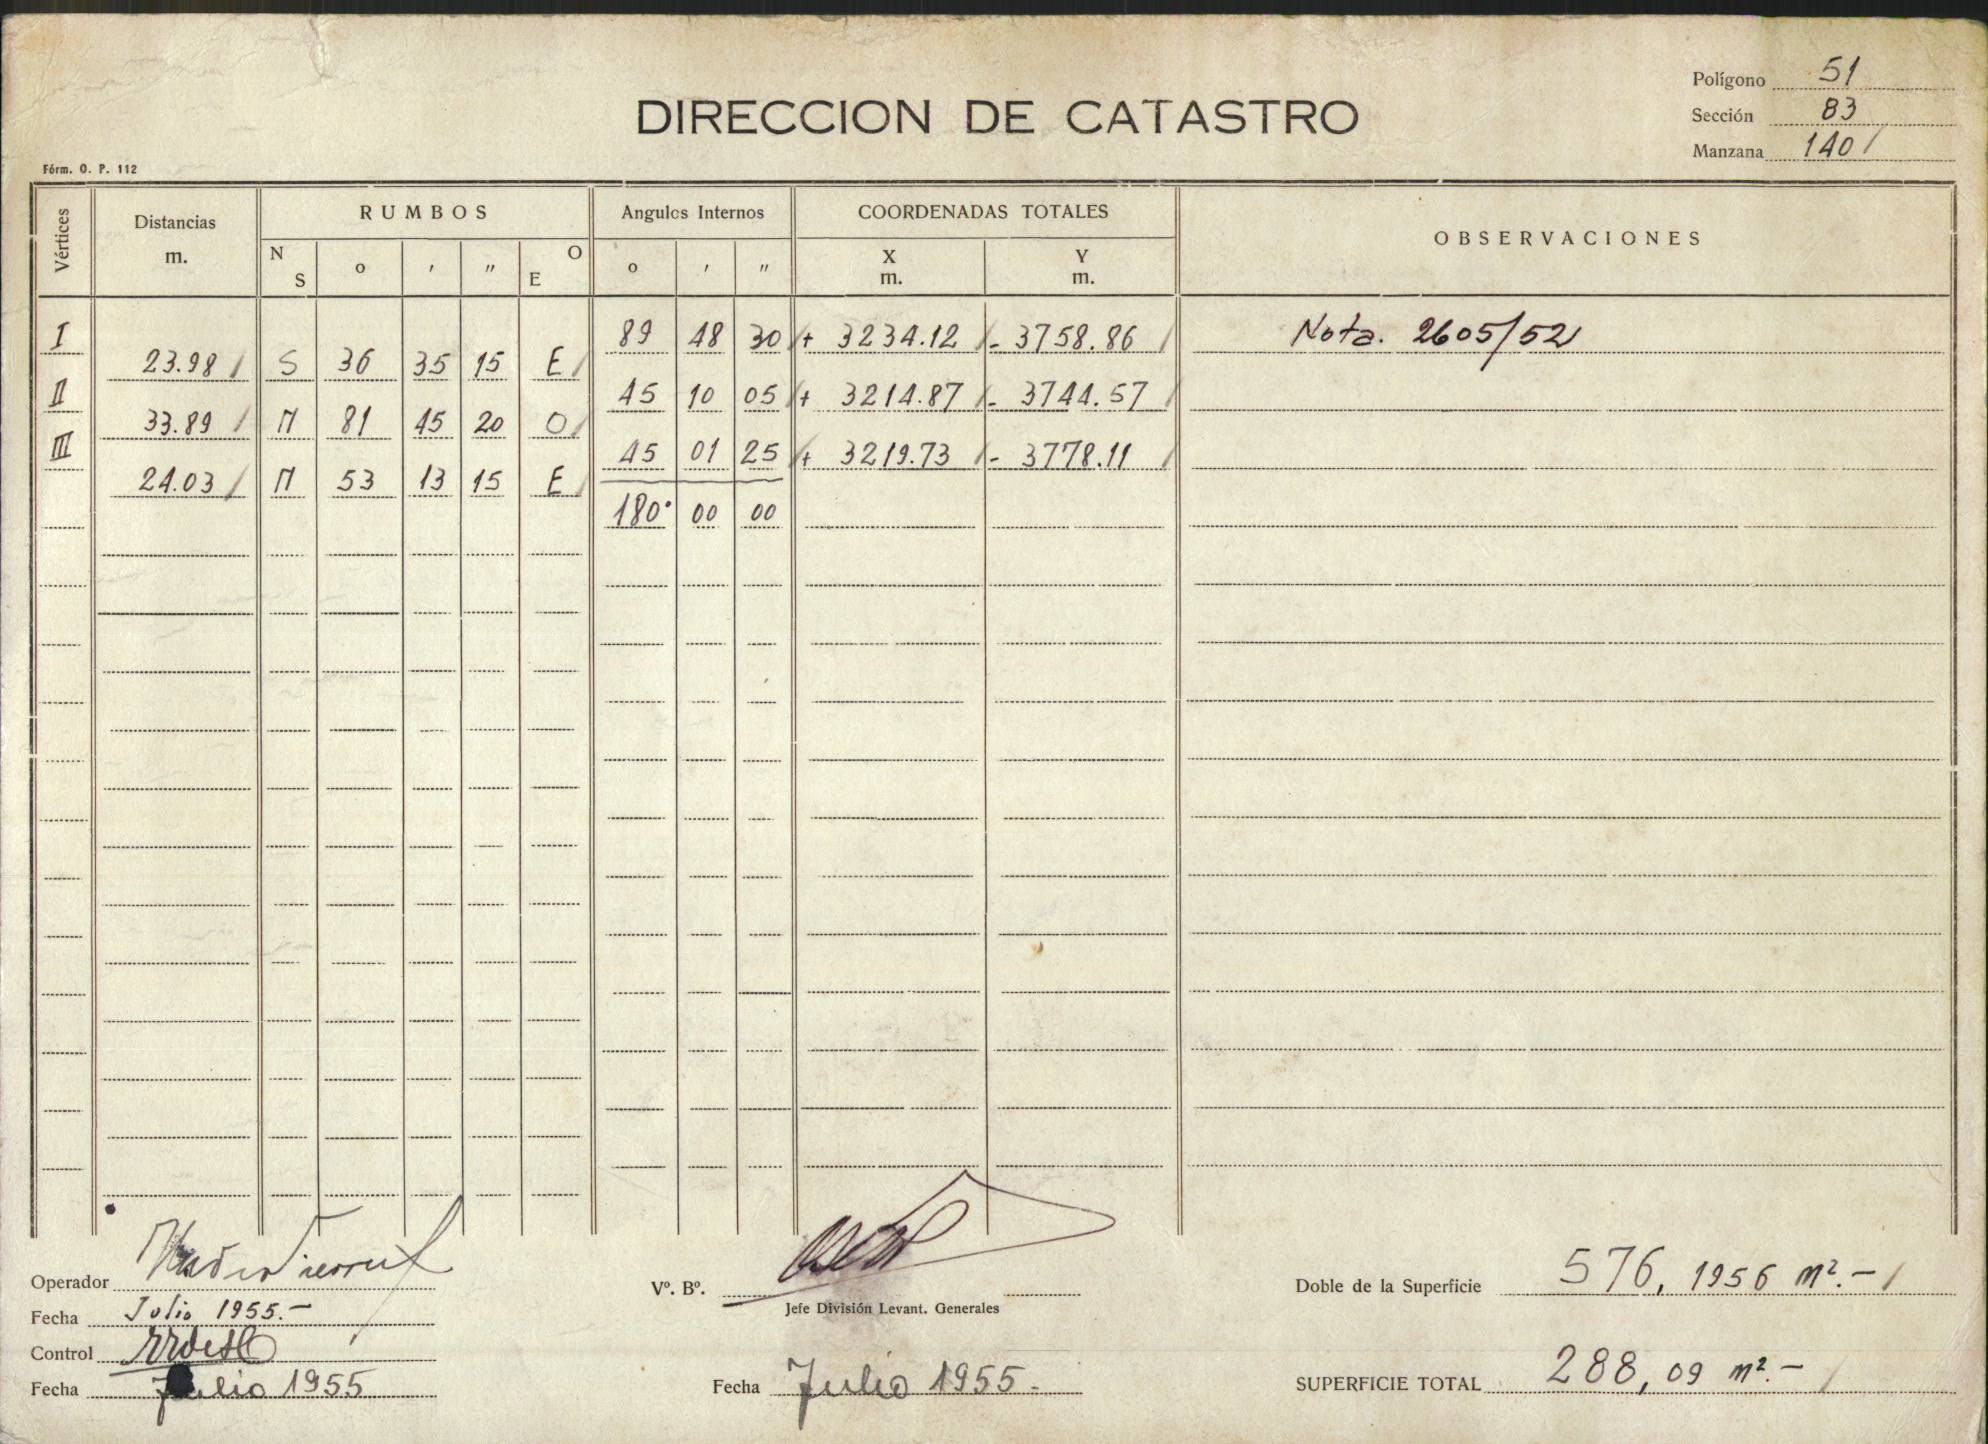 Polígono 51
DIRECCION DE CATASTRO
Sección 83
Manzana 140
Fórm. O. P. 112
Vértices Distancias m. RUMBOS Angulos Internos COORDENADAS TOTALES OBSERVACIONES
N S o ' " O E o ' " X m. Y m.
I 89 48 30 + 3234.12 - 3758.86 Nota. 2605/52
23.98 S 36 35 15 E
II 45 10 05 + 3214.87 - 3744.57
33.89 N 81 45 20 O
III 45 01 25 + 3219.73 - 3778.11
24.03 N 53 13 15 E
180° 00 00
Operador
Vº. Bº.
Doble de la Superficie 576,1956 m².-
Fecha Julio 1955.-
Jefe División Levant. Generales
Control
Fecha Julio 1955
Fecha Julio 1955.-
SUPERFICIE TOTAL 288,09 m².-